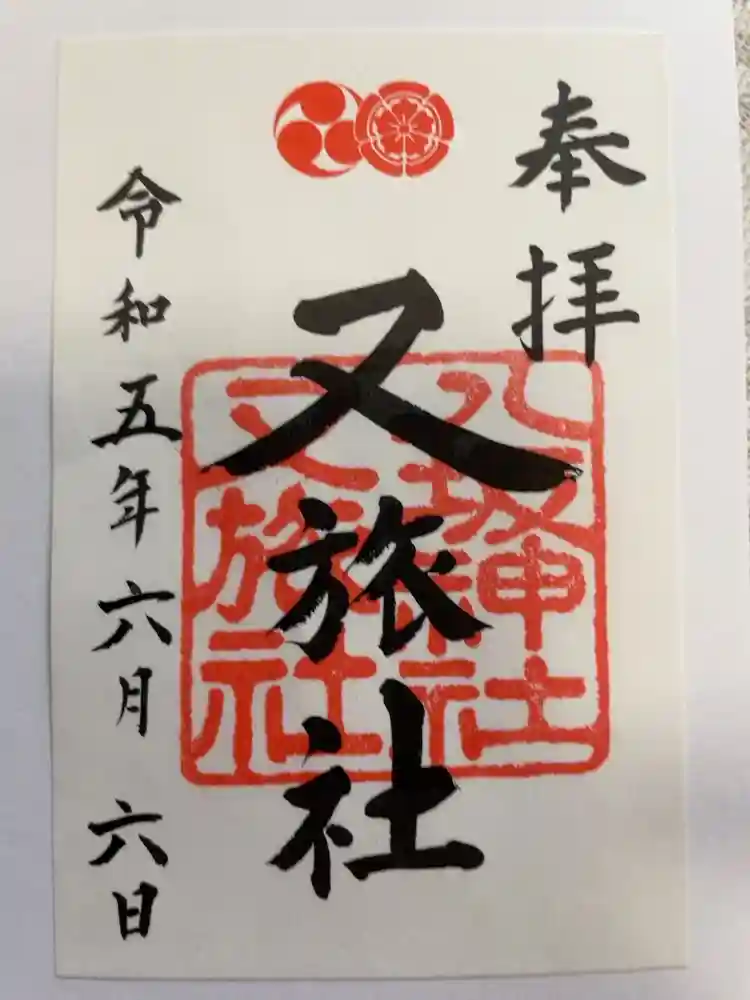 奉拝
八坂神社
又旅社
又旅社
令和五年六月六日